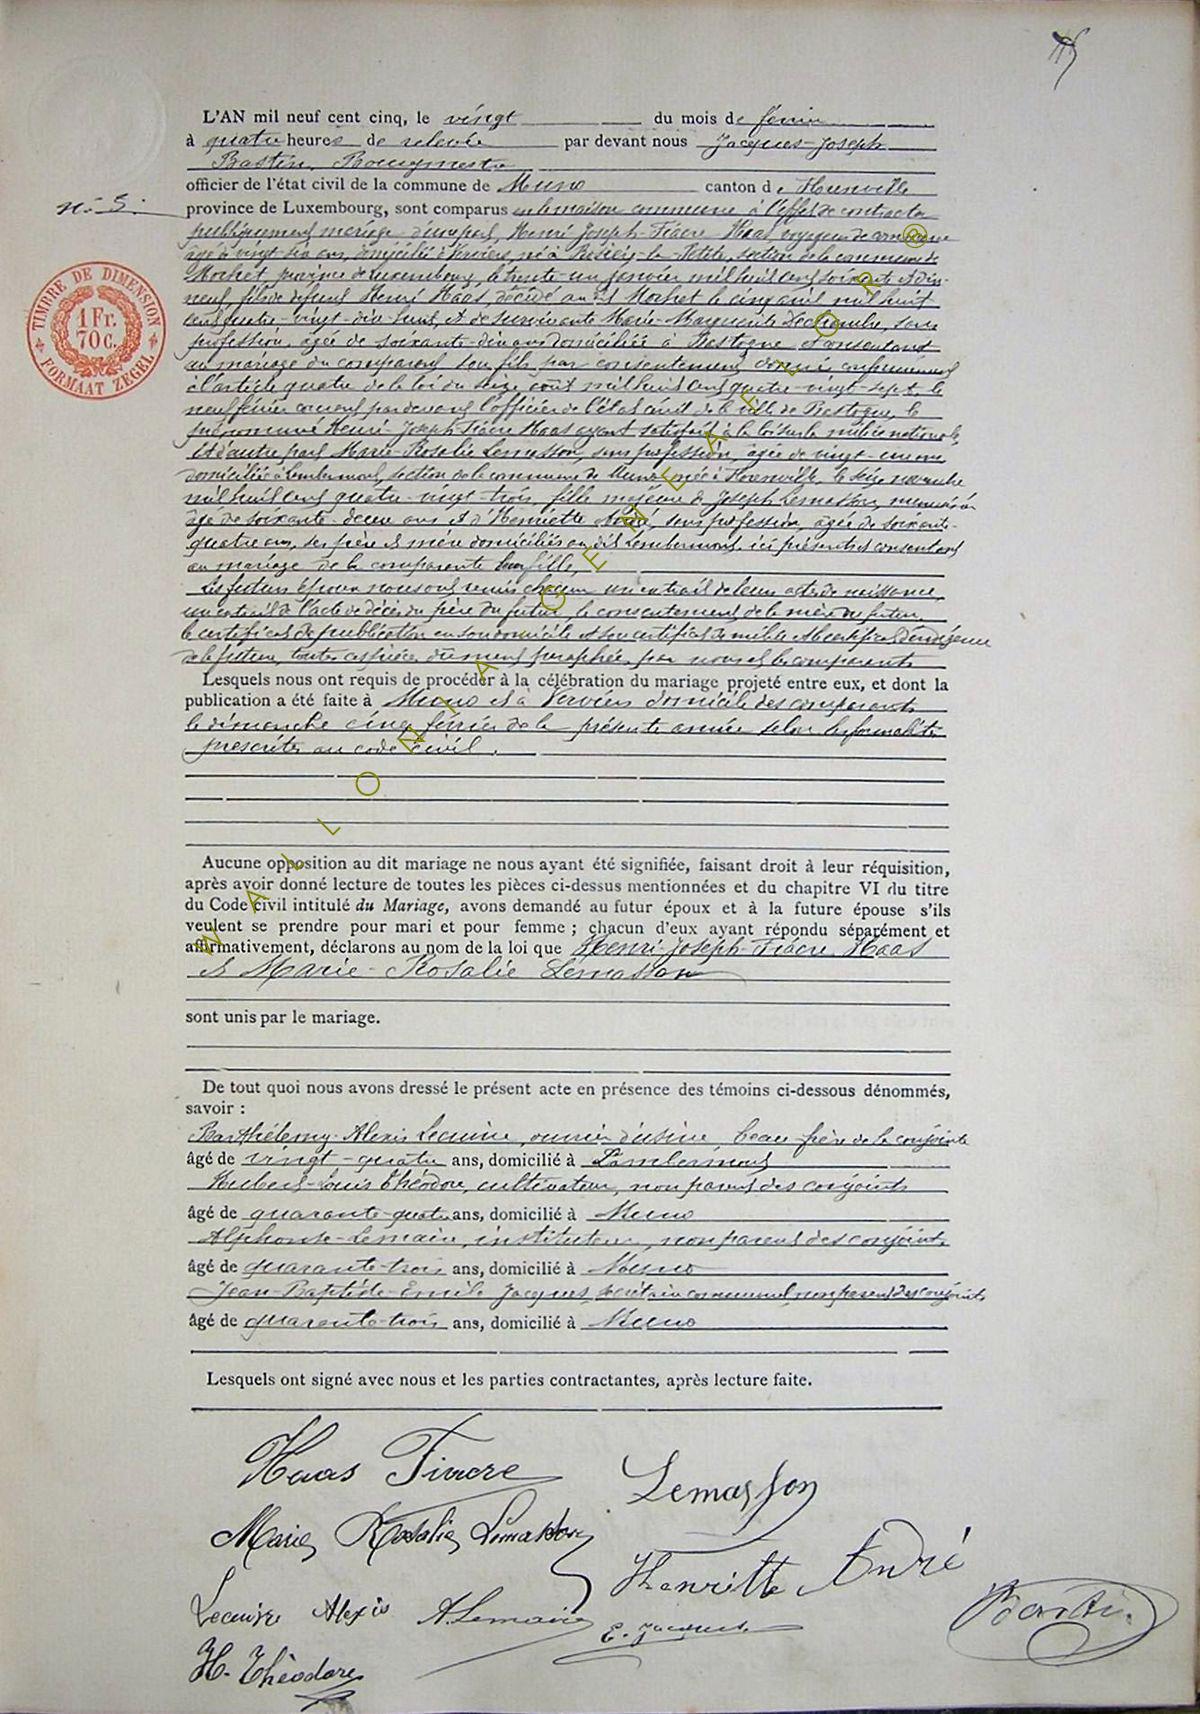 L'AN mil neuf cent cinq, le vingt du mois de février
à quatre heures de relevée par devant nous Jacques-Joseph
Bastin, Bourgmestre
officier de l'état civil de la commune de Muno canton de Florenville
N° 5. province de Luxembourg, sont comparus en la maison commune à l'effet de contracter
publiquement mariage d'une part, Henri Joseph Fiacre Haas, voyageur de commerce
âgé de vingt six ans, domicilié à Verviers, né à section de la commune de
province de Luxembourg, le trente-un janvier mil huit cent soixante et dix-
neuf, fils de défunt Henri Haas, décédé au dit le cinq avril mil huit
cent quatre-vingt-dix-huit, et de survivante Marie-Marguerite sans
profession, âgée de soixante-dix ans domiciliée à Bastogne consentant
au mariage du comparant son fils par consentement donné conformément
à l'article quatre de la loi du seize août mil huit cent quatre-vingt-sept le
neuf février courant par devant l'officier de l'état civil de la ville de Bastogne, le
prénommé Henri Joseph Fiacre Haas ayant satisfait à la loi sur la milice nationale,
Et d'autre part Marie-Rosalie Lemasson, sans profession, âgée de vingt-un ans
domiciliée à Lambermont, section de la commune de Muno née à Florenville le seize novembre
mil huit cent quatre-vingt-trois, fille majeure de Joseph Lemasson, menuisier
âgé de soixante-deux ans et d'Henriette André, sans profession, âgée de soixante-
quatre ans, ses père et mère domiciliés au dit Lambermont, ici présents et consentant
au mariage de la comparante leur fille,
Les futurs époux nous ont remis chacun un extrait de leur acte de naissance,
un extrait de l'acte de décès du père du futur, le consentement de la mère du futur
le certificat de publication en son domicile et son certificat de milice et le certificat d'indigence
de la future, toutes ces pièces dûment paraphées par nous et les comparants
Lesquels nous ont requis de procéder à la célébration du mariage projeté entre eux, et dont la
publication a été faite à Muno et à Verviers domicile des comparants
le dimanche cinq février de la présente année selon les formalités
prescrites au code civil.
Aucune opposition au dit mariage ne nous ayant été signifiée, faisant droit à leur réquisition,
après avoir donné lecture de toutes les pièces ci-dessus mentionnées et du chapitre VI du titre
du Code civil intitulé du Mariage, avons demandé au futur époux et à la future épouse s'ils
veulent se prendre pour mari et pour femme ; chacun d'eux ayant répondu séparément et
affirmativement, déclarons au nom de la loi que Henri-Joseph-Fiacre Haas
et Marie-Rosalie Lemasson
sont unis par le mariage.
De tout quoi nous avons dressé le présent acte en présence des témoins ci-dessous dénommés,
savoir :
Barthélemy Alexis Lecuire, ouvrier d'usine, beau-frère de la conjointe
âgé de vingt-quatre ans, domicilié à Lambermont
Hubert-Louis Théodore, cultivateur, non parent des conjoints
âgé de quarante-quatre ans, domicilié à Muno
Alphonse Lemaire, instituteur, non parent des conjoints
âgé de quarante-trois ans, domicilié à Muno
Jean-Baptiste-Emile Jacques, secrétaire communal non parent des conjoints
âgé de quarante-trois ans, domicilié à Muno
Lesquels ont signé avec nous et les parties contractantes, après lecture faite.
Haas Fiacre Lemasson
Marie Rosalie Lemasson
Henriette André
Lecuire Alexis A Lemaire E. Jacques Bastin
H. Théodore
TIMBRE DE DIMENSION
1 Fr.
70 C.
FORMAAT ZEGEL
WALLONIA GENEALOR ®